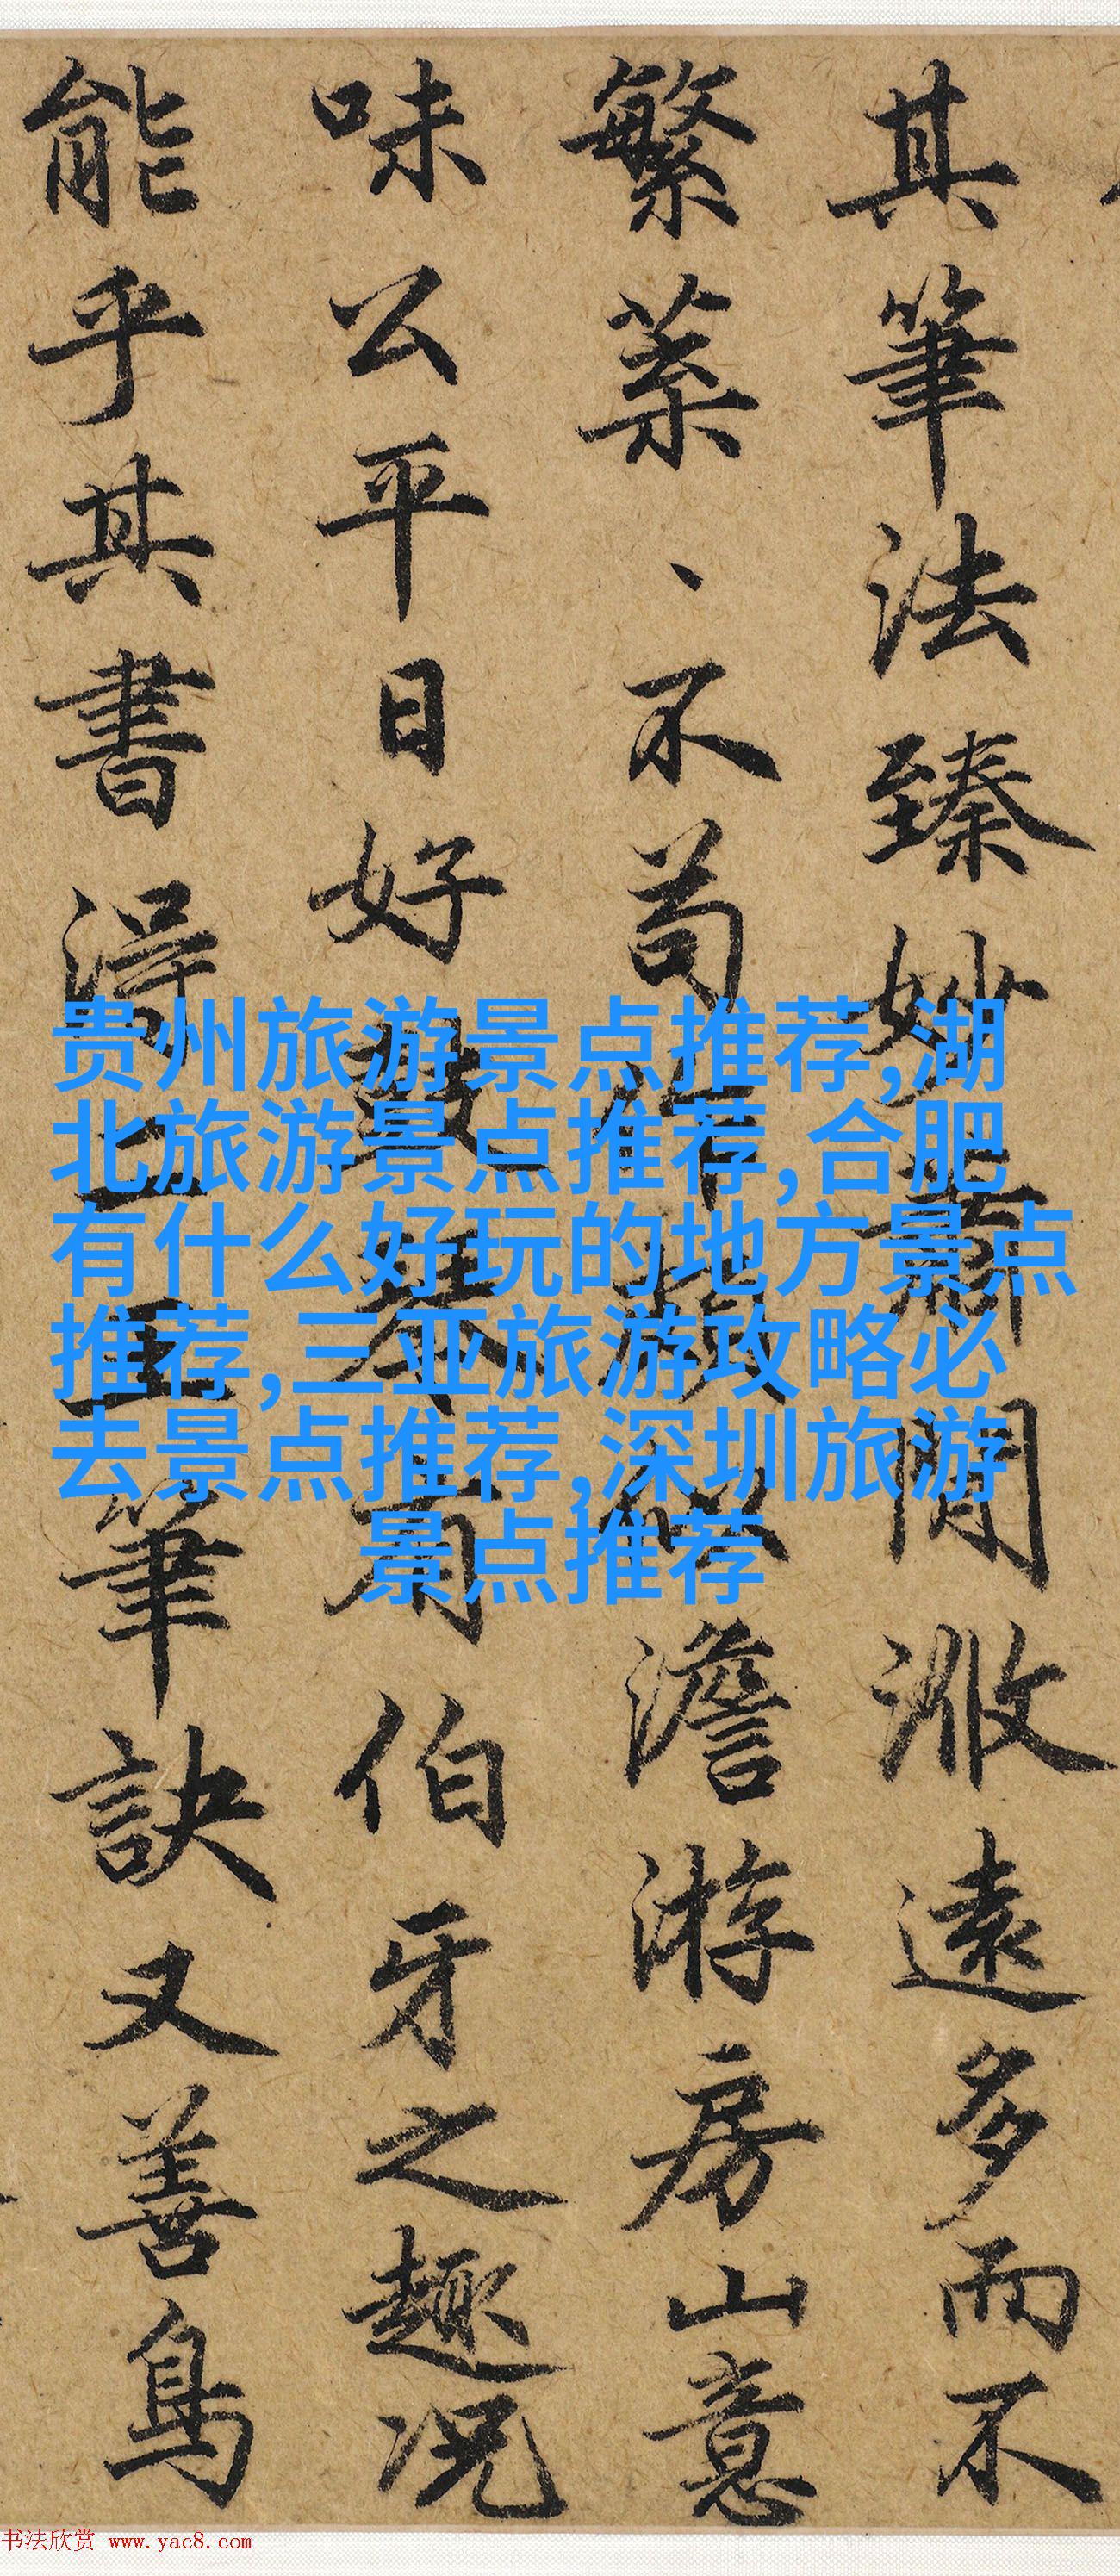 其筆法臻妙閒遠多而不
繁、不苟作澹游房山意
味公平日好鼓琴有伯牙之趣况
能乎其書得二王筆訣又善鳥
贵州旅游景点推荐,湖
北旅游景点推荐,合肥
有什么好玩的地方景点
推荐,三亚旅游攻略必
去景点推荐,深圳旅游
景点推荐
书法欣赏 www.yac8.com